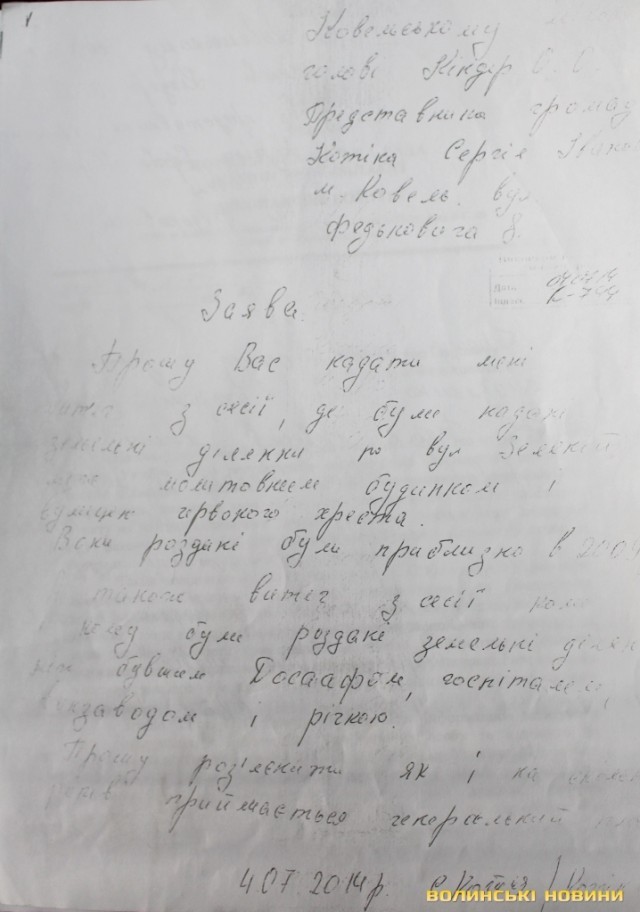 Ковельському
голові Кіндер О. О.
Представника громад
Котіка Сергія Івано
м. Ковель. вул
Федьковича 8.
Заява.
Прошу Вас надати мені
витяг з сесії, де були надані
земельні ділянки по вул Зеленій
між молитовним будинком і
вулицею червоного хреста.
Вони роздані були приблизно в 2009
також витяг з сесії коли
були роздані земельні ділян
між бувшим Досаафом, госпіталем,
заводом і річкою.
Прошу роз'яснити як і на
приймається генеральний
4.07.2014 р.
ВОЛИНСЬКІ НОВИНИ